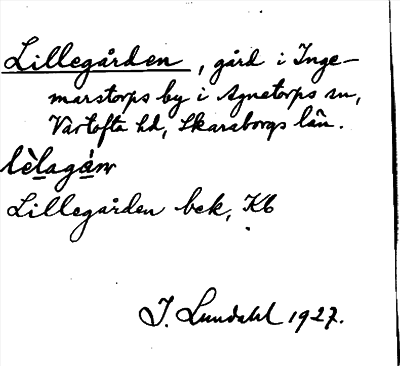 Lillegården, gård i Inge-
marstorps by i Agnetorps sn,
Vartofta hd, Skaraborgs län.
Lillegården bek, Kb
I. Lundahl 1927.